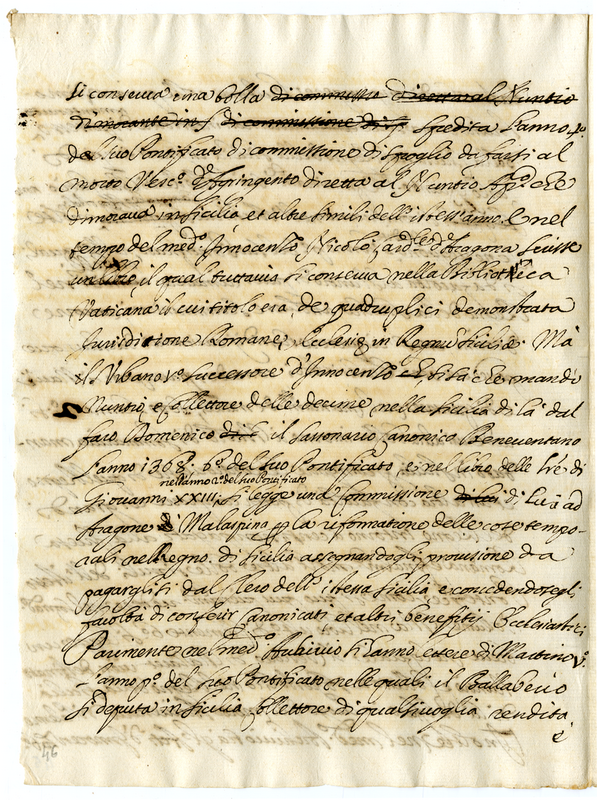 si conserua una bolla di commissione directa al Nuntio
dimorante in S di commissione di sp. spedita l'anno po.
del suo Pontificato di commissione di spoglio da farsi al
morto Vesco. d'Agringento diretta al Nuntio Apco. che
dimoraua in Sicilia et altre simili dell'istess'anno. e nel
tempo del medo. Innocentio, Nicolò Card.le d'Aragona scrisse
un libro, il qual tuttauia si conserua nella Biblioteca
Vaticana il cui titolo era, de quadruplici demonstrata
Iurisdictione Romanę Ecclesię in Regno Sicilię. Mà
il Vrbano Vo. successore d'Innocentio si sà che mandò
Nuntio, e Collettore delle decime nella Sicilia di là dal
faro Domenico di il Sassonario Canonico Beneuentano
l'anno 1368. 6o. del suo Pontificato, e nel libro delle lre di
nell'anno 2o. del suo Pontificato
Giouanni XXIII, si legge una Commissione di lui ad
Aragone Malaspina per la riformatione delle cose tempo-
rali nel Regno di Sicilia assegnandogli prouisione da
pagargli si dal Clero dell'istessa Sicilia e concedendosegli
facoltà di conferir Canonicati et altri beneficij Ecclesiastici
Parimente nel medo. Archiuio si hanno lettere di Martino Vo.
l'anno po. del suo Pontificato nelle quali il
si deputa in Sicilia Collettore di qualsiuoglia rendita
e
46